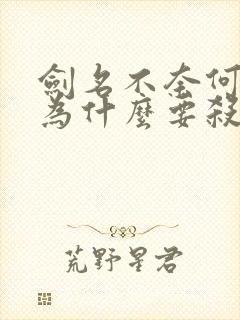 劍名不奈何
為什麼要殺
荒野星君